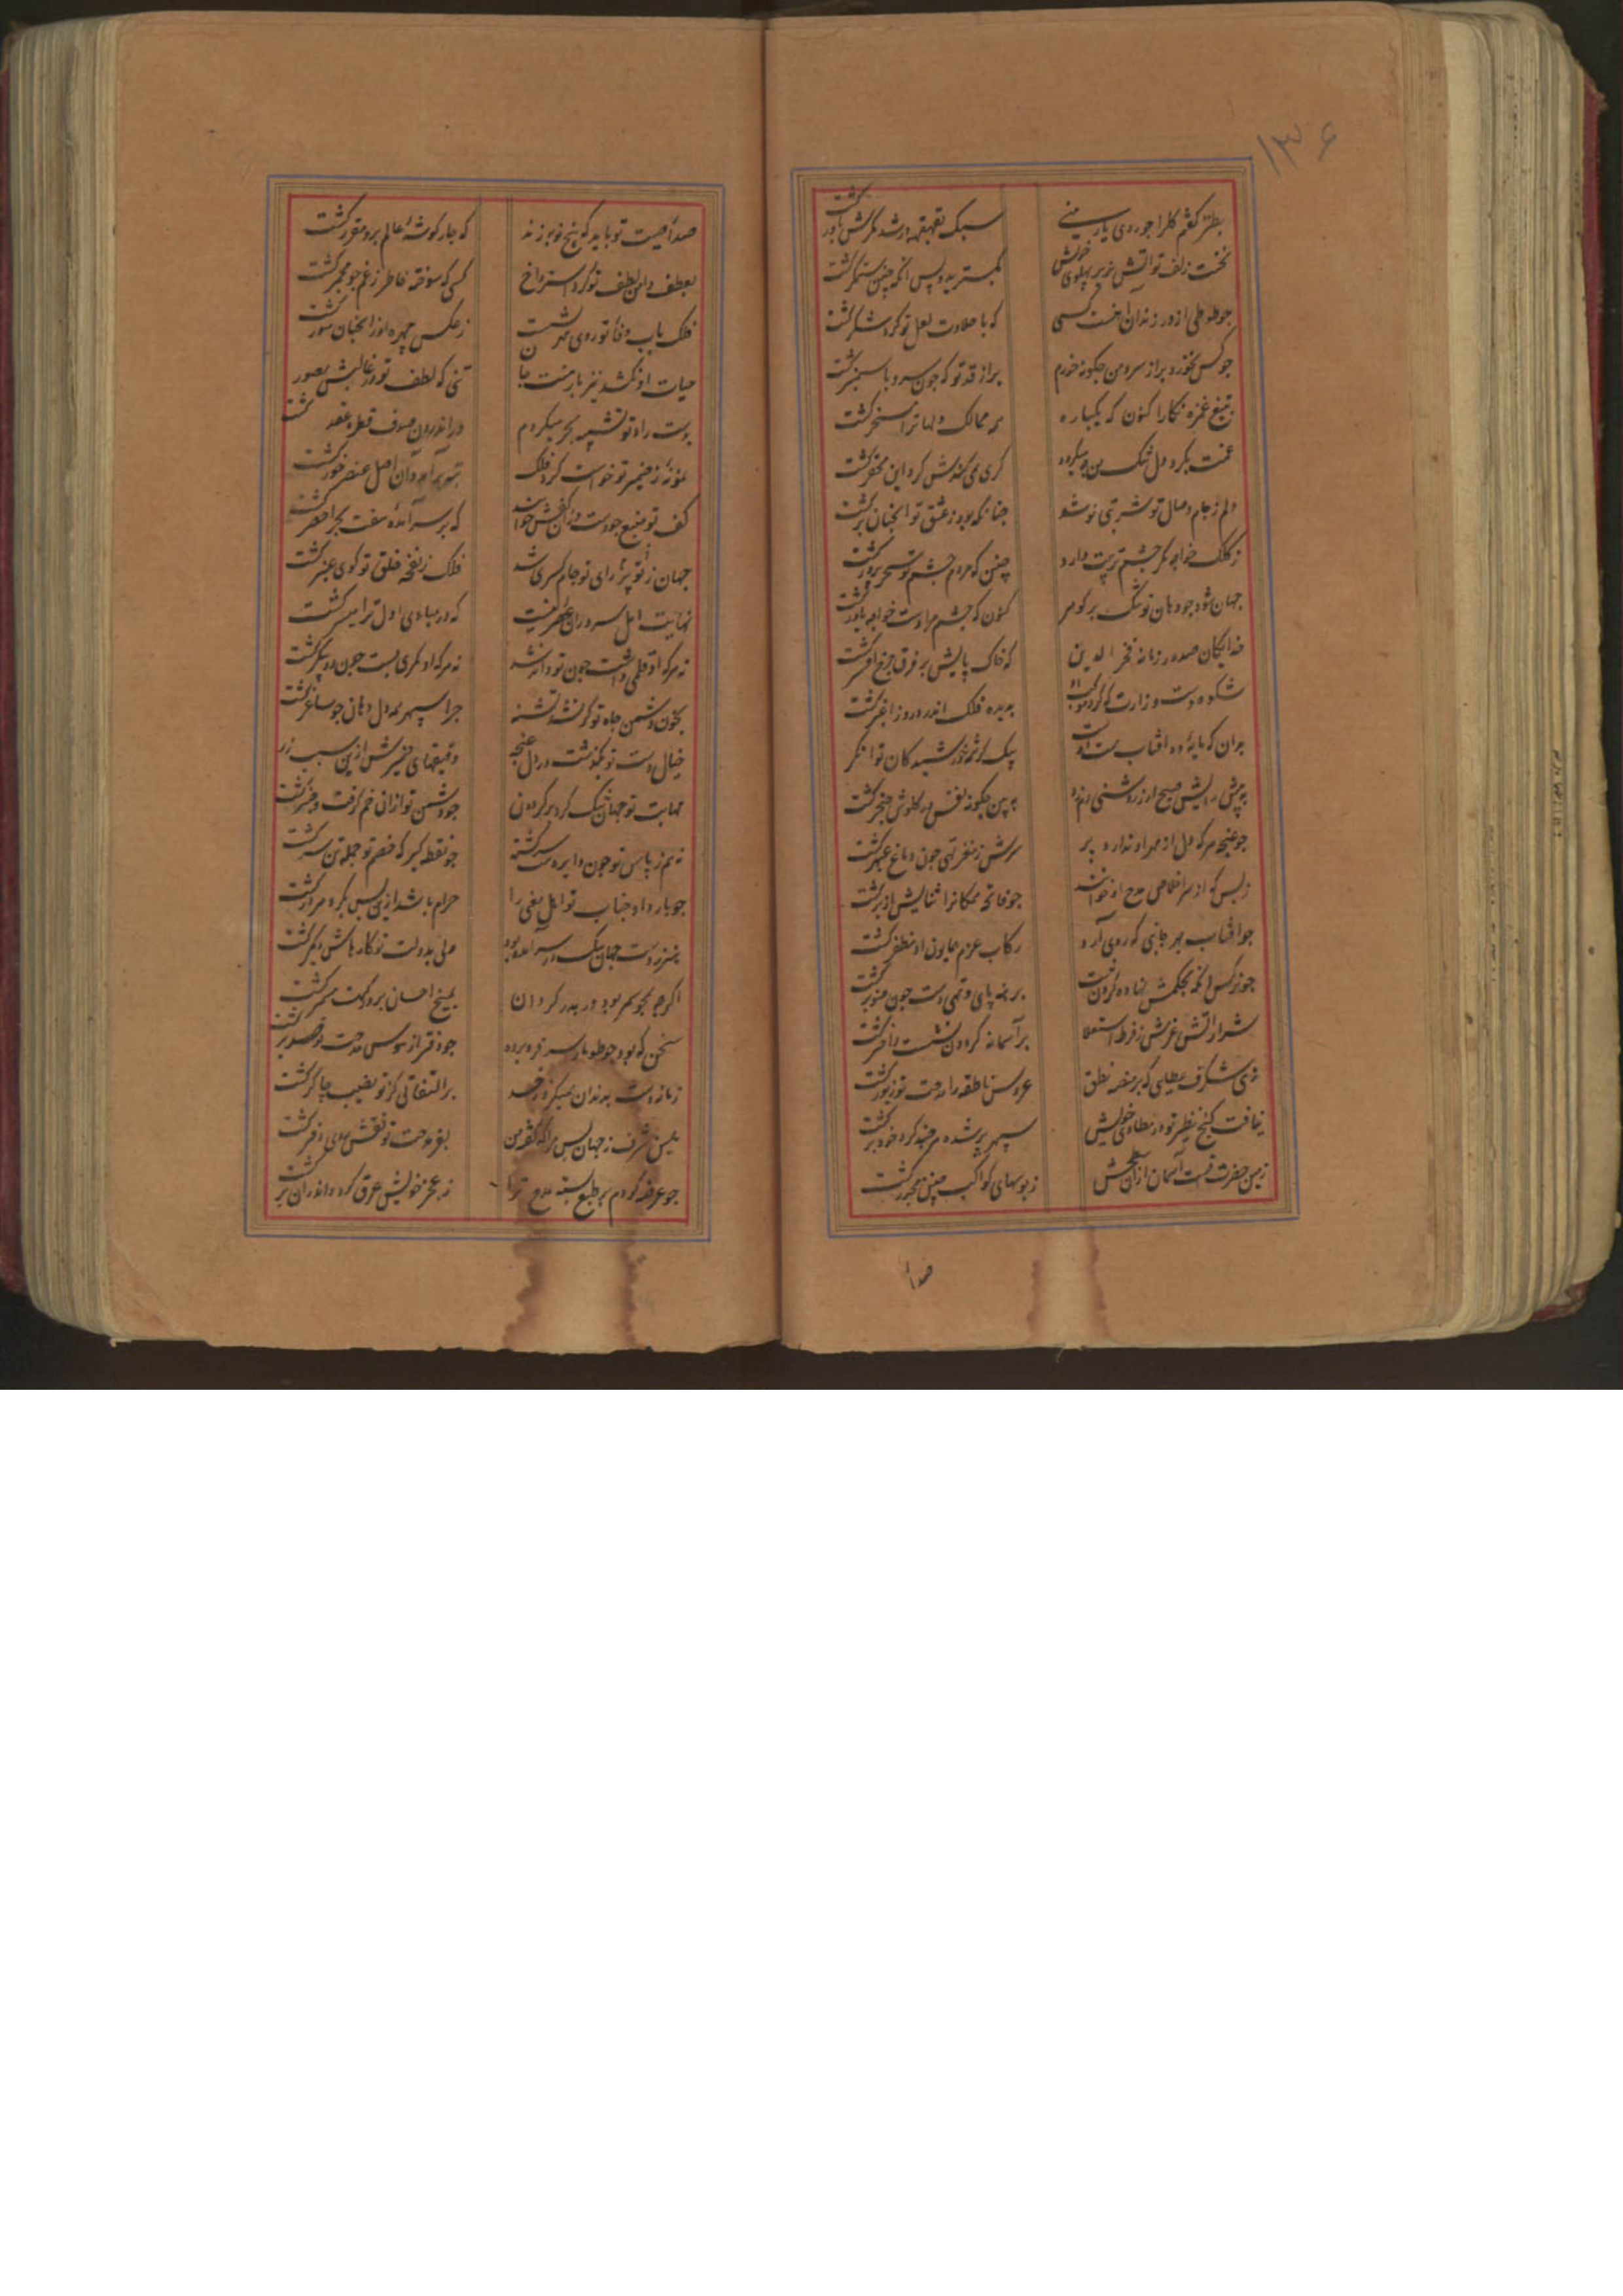 ۱۳۶
بطنز گفتم گل را چو روی یار منی
سبک بقهقهه در شد مگرش باور گشت
نخست زلف تو آتش بزیر پهلوی خویش
بگسترید و پس آنکه چنین ستمگر گشت
چو طوطی از در زندان آهنست کسی
که با حلاوت لعل تو گرد شکر گشت
چو کس نخورد بر از سرو من چگونه خورم
بر از قد تو که چون سرو یاسمنبر گشت
بتیغ غمزه نگارا کنون که یکباره
همه ممالک دلها ترا مسخر گشت
غمت بگرد دل تنگ من
دلم ز جام وصال تو شربتی نوشد
چنانکه بود ز عشق تو آنچنان برگشت
ز کلک خواجه مگر چشم تربیت دارد
چنین که مردم چشم تو سحرپرور گشت
جهان شود چو دهان تو تنگ بر گوهر
کنون که چشم مرا دست خواجه یاور گشت
خدایگان صدور زمانه فخر الدین
که خاک پایش بر فرق چرخ افسر گشت
شکوه دست وزارت که گرد موکب او
بدیده فلک اندر ذرور اغبر گشت
بدان که مایه ده آفتاب همت اوست
بیک نظر خورشید کان توانگر
به پیش رایش صبح ار ز روشنی دم زد
ببین چگونه نفس در گلوش خنجر گشت
چو غنچه هر که دل از مهر او ندارد پر
سرش ز مغز تهی چون دماغ عبهر گشت
ز بس که از سر اخلاص مدح او خوانند
چو فاتحه همگانرا ثنایش از بر گشت
چو آفتاب بهر جانبی که روی آرد
رکاب عزم همایون او مظفر گشت
چو نرگس آنکه بحکمش نهاده گردن نیست
برهنه پای و تهی دست چون صنوبر گشت
شرار آتش عزمش ز فرط استعلا
بر آسمانه گردون نشست و اختر گشت
زهی شگرف عطایی که بر منصه نطق
عروس ناطقه را مدحت تو زیور گشت
نیافت هیچ نظیر تو در مطاوی خویش
سپهر بر شده هر چند گرد خود بر گشت
زمین حضرت تست آسمان از آن سطحش
ز بوسهای کواکب چنین مجدر گشت
صدا
صداء صیت تو باید که پنج نوبه زند
که چار گوشه عالم برو مقرر گشت
بعطف دامن لطف تو کرد استرواح
کسی که سوخته خاطر ز غم چو مجمر گشت
فلک بآب وفا تو روی مهر بشست
ز عکس چهره او زانچنان منور گشت
حیات او نکشد نیز بار منت جان
تنی که لطف تو در قالبش مصور گشت
بدست راد تو تشبیه بحر میکردم
در اندرون صدف قطره عقد گشت
نمونه ز ضمیر تو خواست کرد فلک
کف تو منبع جودست و زان کفش خوانند
که بر سر آمده هفت بحر اخضر گشت
جهان ز پرتو رای تو جام کسری شد
فلک ز نفخه خلق تو گوی عنبر گشت
نهایت امل سروران عصر نیست
که در مبادی اول ترا میسر گشت
نه هر که او قلمی داشت چون تو داند شد
نه هر که او کمری بست چون دو پیکر گشت
بخون دشمن جاه تو گر نشد تشنه
چرا سپهر همه دل دهان چو ساغر گشت
خیال دست تو بگذشت در دل غنچه
دقیقهای ضمیرش ازین سبب زر
مهابت تو جهان تنگ کرد بر گردون
چو دشمن تو از آن خم گرفت و چنبر گشت
نه هم ز پاس تو چون دایره سرگشته
چو نقطه گیر که خصم تو جمله تن سر گشت
چو بار داد جناب تو اهل معنی را
حرام باشد ازین پس بگرد هر در گشت
هنر ز دست جهان نیک در سر آمده بود
ولی بدولت تو کارهاش دیگر گشت
اگرچه بحر همه بود در بدر گردان
بمیخ احسان بر درگهت مسمر گشت
سخن که بود چو طومار سر فرو برده
چو دفتر از هوس مدحت تو صدر گشت
زمانه دست بدندان همیگزد ز حسد
بر التفاتی کز تو نصیب چاکر گشت
همین شرف ز جهان بس مرا که گفته من
بفر مدحت تو نقش روی دفتر گشت
چو عرضه کردم بر طبع بسته مدح ترا
ز عجز خویش عرق کرد و اندر آن تر گشت